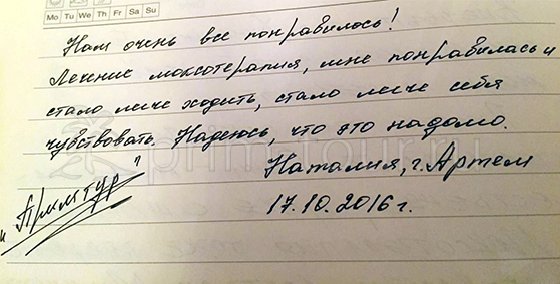 Mo Tu We Th Fr Sa Su
Нам очень все понравилось!
Лечение моксотерапия, мне понравилась и
стало легче ходить, стало легче себя
чувствовать. Надеюсь, что это надолго.
Наталия, г. Артем
17.10.2016 г.
"Примтур"
prim-tour.ru